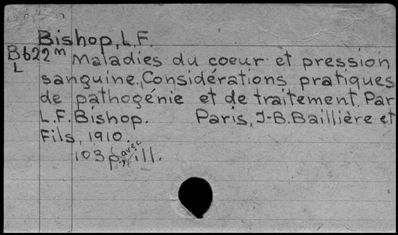 Bishop, L.F.
B622m Maladies du coeur et pression
L sanguine. Considérations pratiques
de pathogénie et de traitement. Par
L.F. Bishop. Paris, J-B. Baillière et
Fils, 1910.
103p. avec ill.